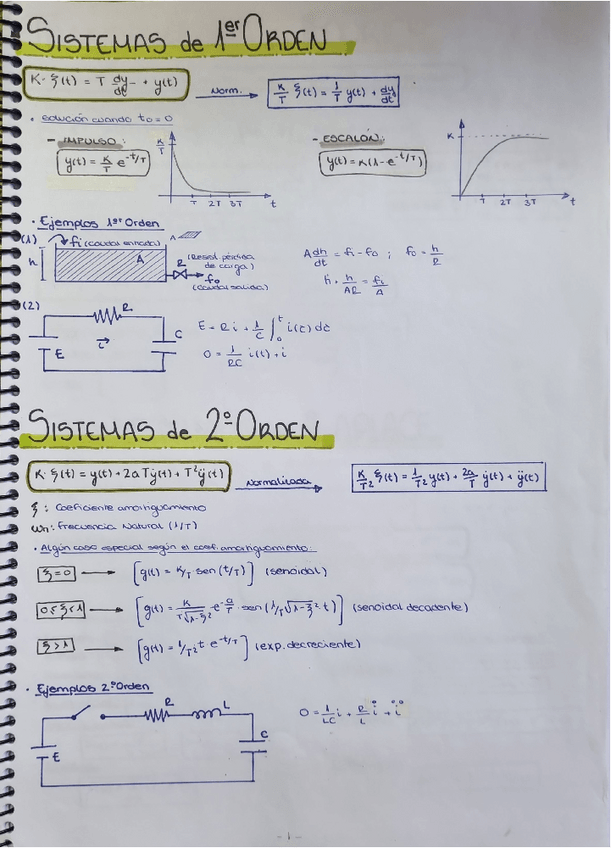 SISTEMAS de 1er ORDEN
K·ξ(t) = T dy/dt + y(t) Norm. K/T ξ(t) = 1/T y(t) + dy/dt
· Solución cuando t0=0
- IMPULSO: - ESCALÓN:
y(t) = K/T e^-t/T y(t) = K(1-e^-t/T)
K/T T 2T 3T t
K T 2T 3T t
· Ejemplos 1er Orden
(1) fi (caudal entrada) A
h A R (Resist. pérdida de carga)
fo (caudal salida)
A dh/dt = fi - fo ; fo = h/R
ḣ + h/AR = fi/A
(2) R
E i C
E = Ri + 1/C ∫₀ᵗ i(t) dt
0 = 1/RC i(t) + i
SISTEMAS de 2º ORDEN
K·ξ(t) = y(t) + 2aTẏ(t) + T²ÿ(t) Normalizada K/T² ξ(t) = 1/T² y(t) + 2a/T ẏ(t) + ÿ(t)
ξ: Coeficiente amortiguamiento
ωn: Frecuencia Natural (1/T)
· Algún caso especial según el coef. amortiguamiento:
ξ=0 → [g(t) = K/T · sen(t/T)] (senoidal)
0≤ξ<1 → [g(t) = K/T√1-ξ² e^-a/T · sen(1/T√1-ξ² t)] (senoidal decadente)
ξ>1 → [g(t) = 1/T² t e^-t/T] (exp. decreciente)
· Ejemplos 2º Orden
R L
E C
0 = 1/LC i + R/L i̇ + ï
- 1 -